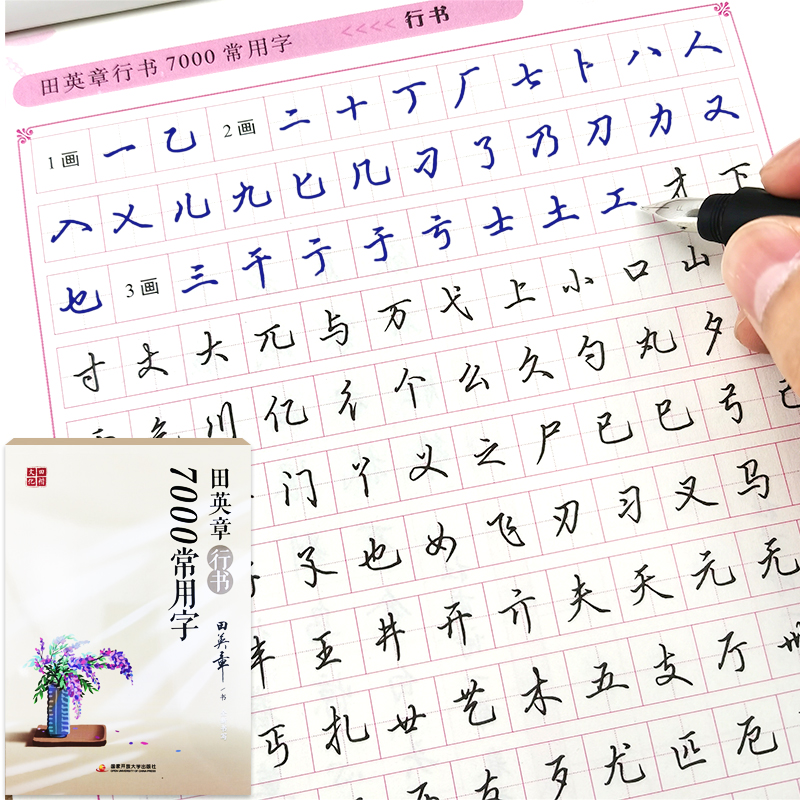 田英章行书7000常用字 <<<< 行书
1画 一 乙 2画 二 十 丁 厂 七 卜 八 人
入 乂 儿 九 匕 几 刁 了 乃 刀 力 又
也 3画 三 干 亍 于 亏 士 土 工 才 下
寸 丈 大 兀 与 万 弋 上 小 口 山
川 亿 彳 个 么 久 勺 丸 夕
门 丫 义 之 尸 已 巳 弓 己
孑 也 女 飞 刃 习 叉 马
丰 王 井 开 亓 夫 天 元 无
丐 扎 廿 艺 木 五 支 厅 卅
友 歹 尤 匹 厄
田英章
行书
7000常用字
田英章
书
国家开放大学出版社
OPEN UNIVERSITY OF CHINA PRESS